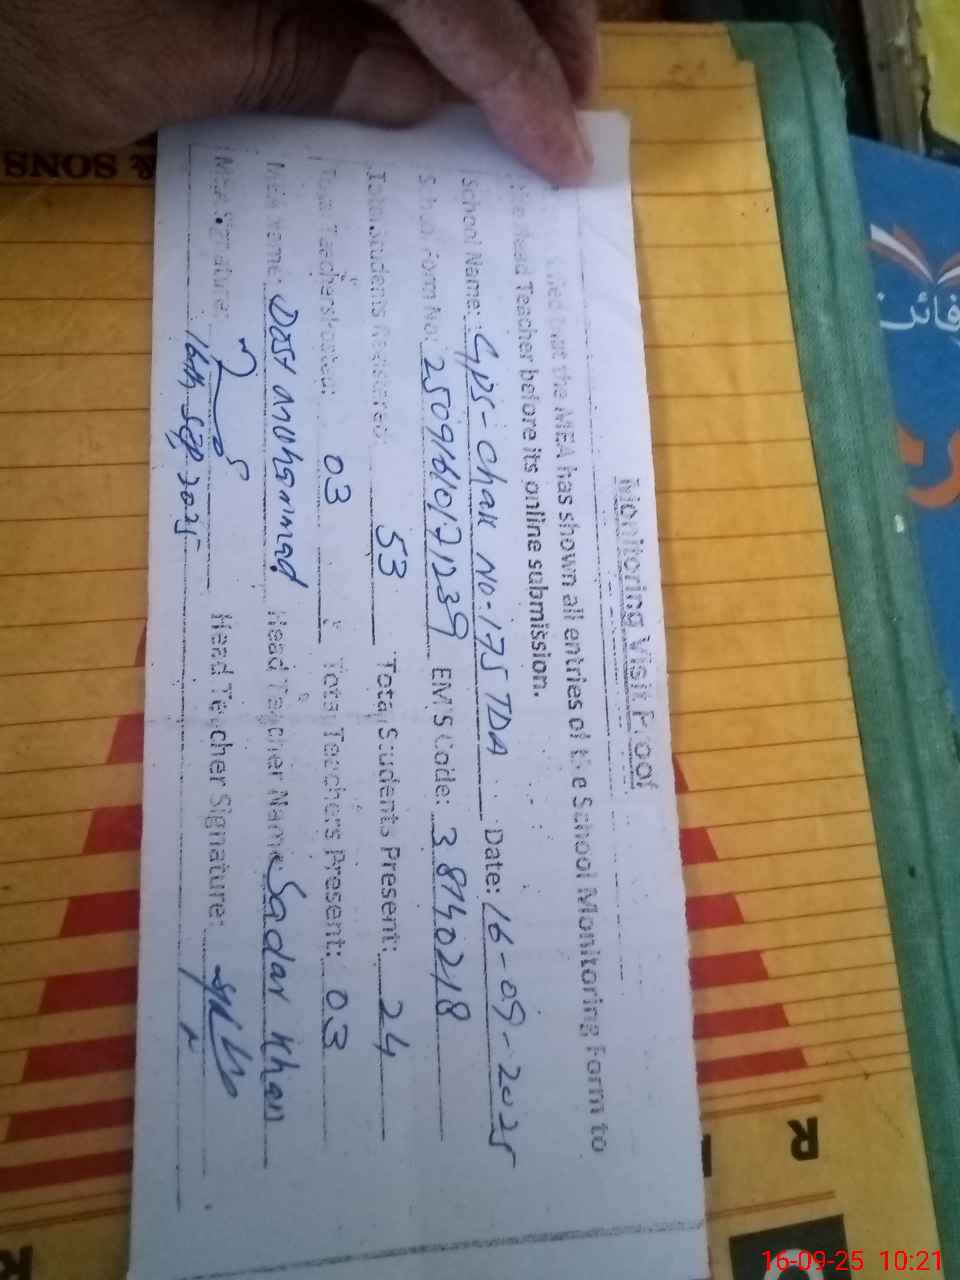 Monitoring Visit Proof
that the MEA has shown all entries of the School Monitoring Form to
the Head Teacher before its online submission.
School Name: GPS-Chak NO-175 TDA Date: 16-09-2025
School Form No: EMIS Code: 38140218
Total Students Registered: 53 Total Students Present: 24
Total Teachers Posted: 03 Total Teachers Present: 03
MEA Name: Dost Muhammad Head Teacher Name: Sadar Khan
MEA Signature: Head Teacher Signature:
16th Sep 2025
& SONS
R
R
16-09-25 10:21